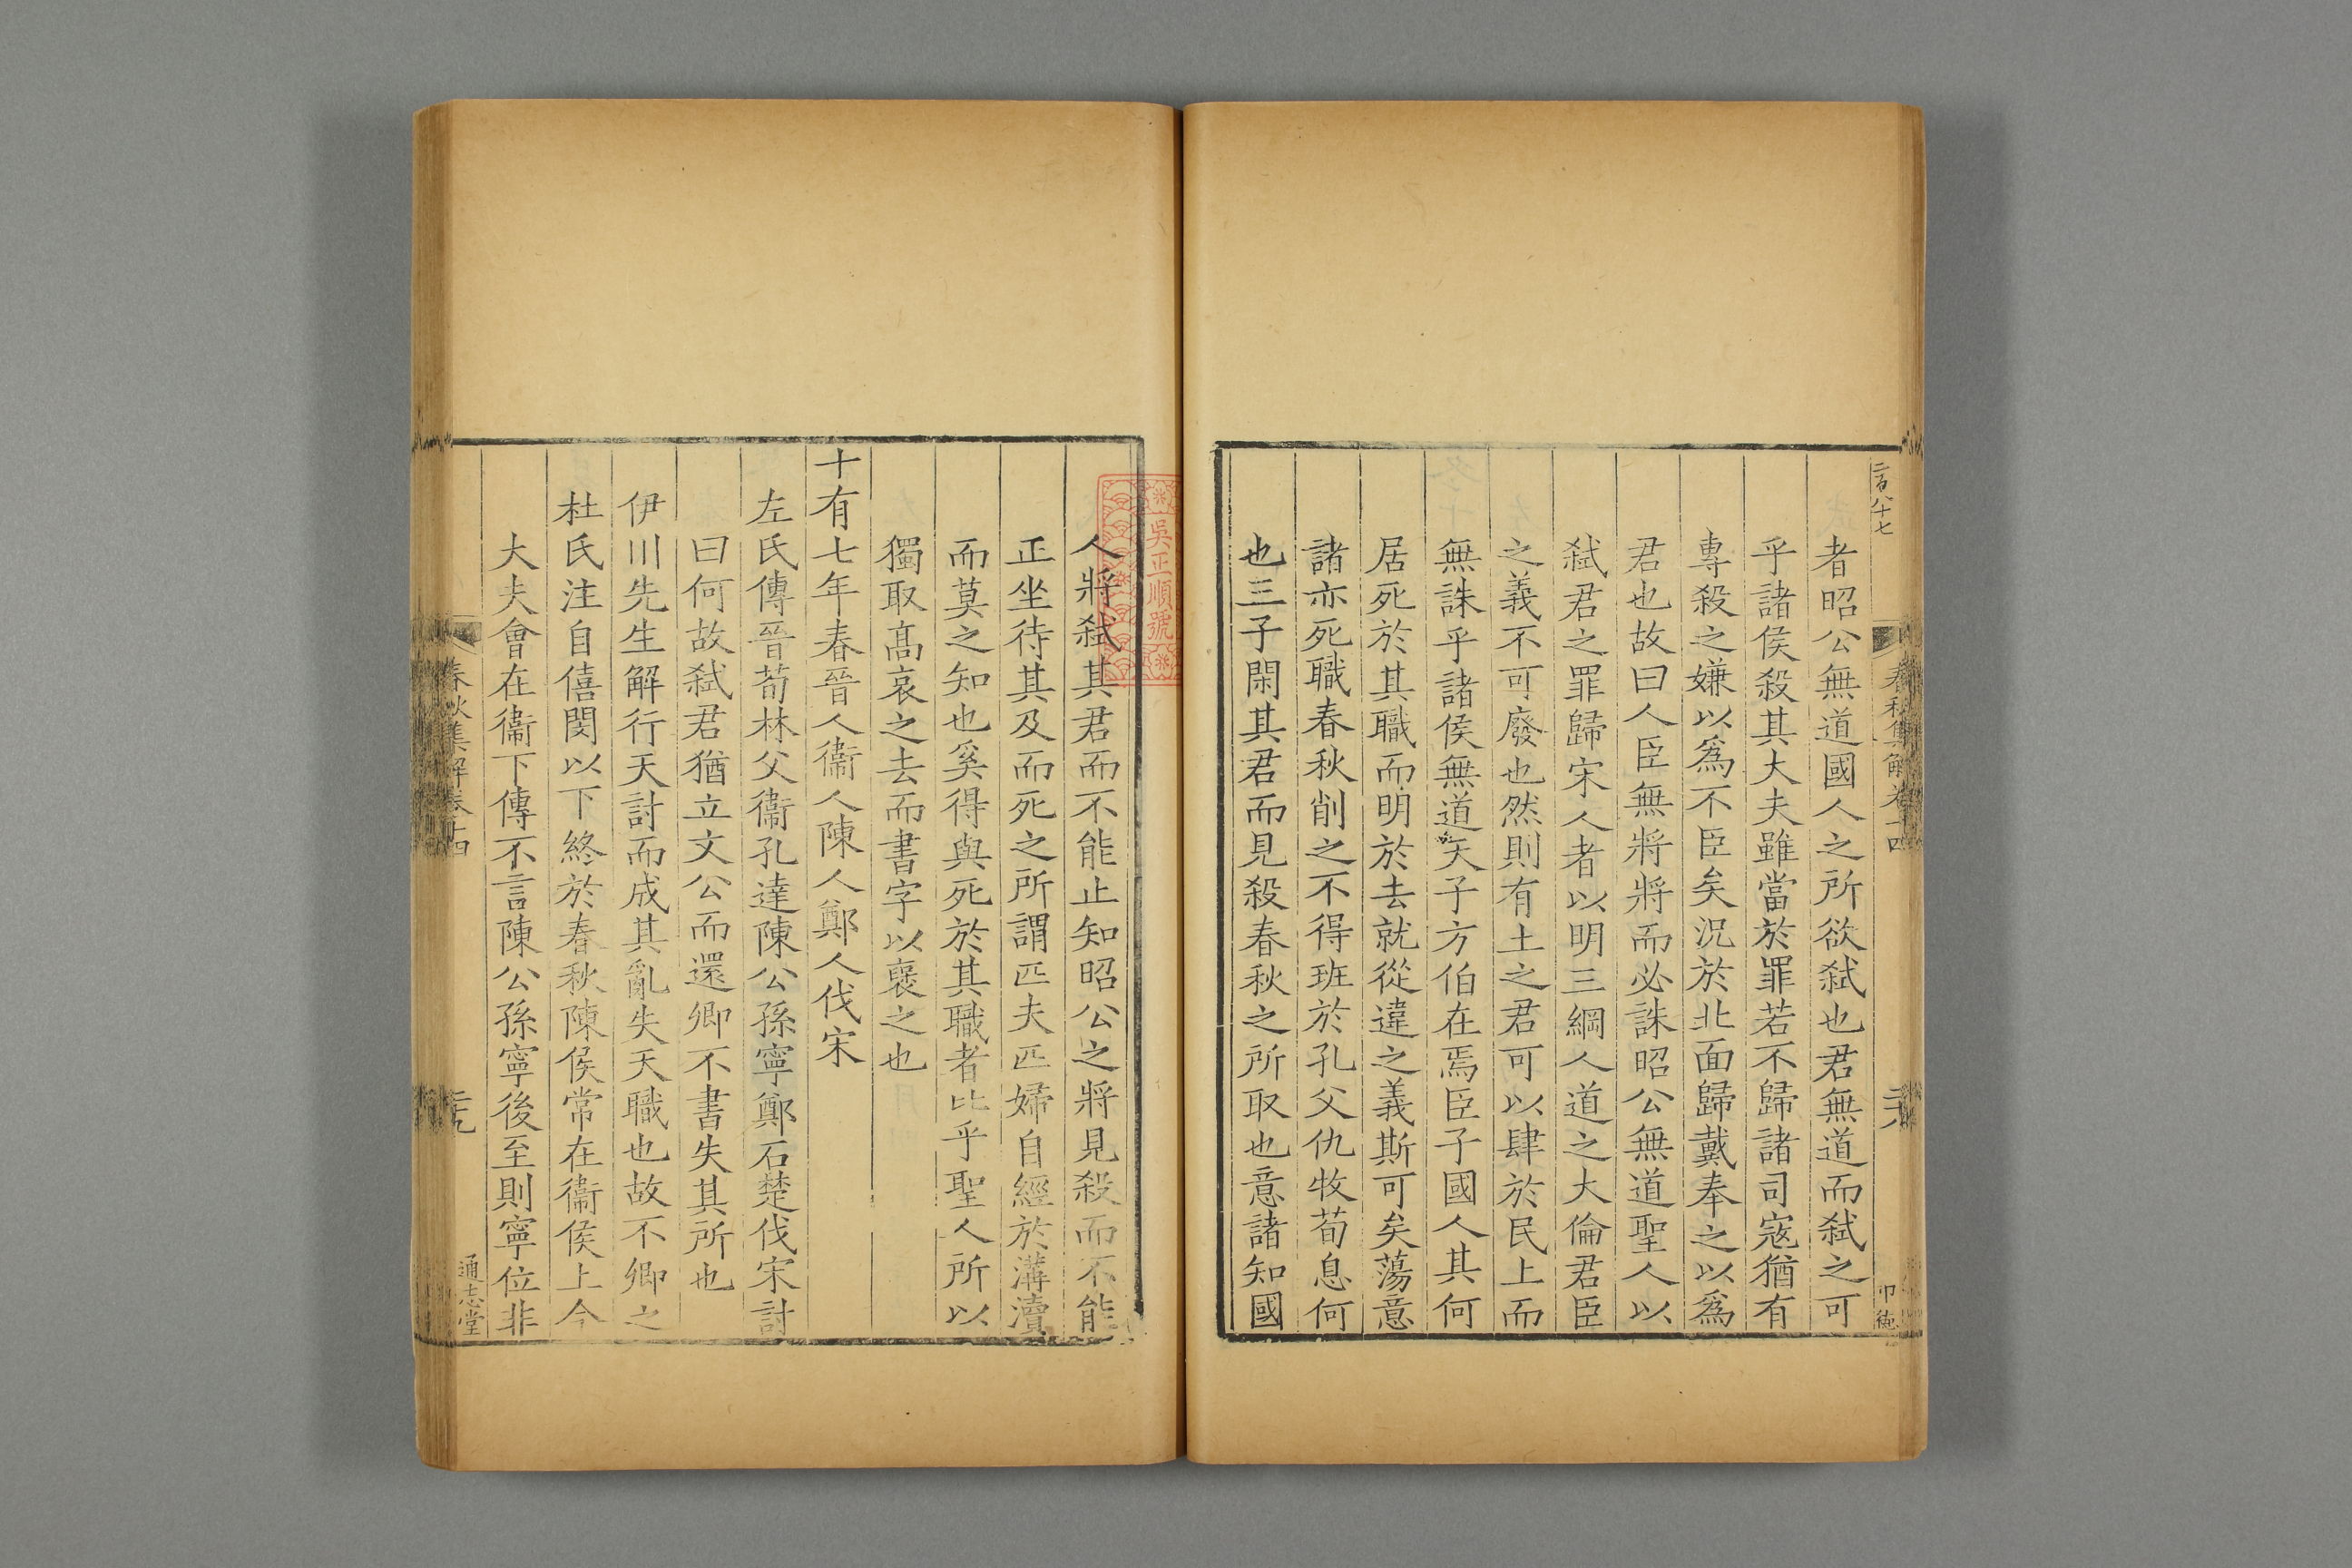 二百八十七
春秋集解卷十四
二十八
卩德
者昭公無道國人之所欲弑也君無道而弑之可
乎諸侯殺其大夫雖當於罪若不歸諸司寇猶有
專殺之嫌以爲不臣矣况於北面歸戴奉之以爲
君也故曰人臣無將將而必誅昭公無道聖人以
弑君之罪歸宋人者以明三綱人道之大倫君臣
之義不可廢也然則有土之君可以肆於民上而
無誅乎諸侯無道天子方伯在焉臣子國人其何
居死於其職而明於去就從違之義斯可矣蕩意
諸亦死職春秋削之不得班於孔父仇牧荀息何
也三子閑其君而見殺春秋之所取也意諸知國
人將弑其君而不能止知昭公之將見殺而不能
正坐待其及而死之所謂匹夫匹婦自經於溝瀆
而莫之知也奚得與死於其職者比乎聖人所以
獨取髙哀之去而書字以襃之也
十有七年春晉人衞人陳人鄭人伐宋
左氏傳晉荀林父衞孔達陳公孫寧鄭石楚伐宋討
曰何故弑君猶立文公而還卿不書失其所也
伊川先生解行天討而成其亂失天職也故不卿之
杜氏注自僖閔以下終於春秋陳侯常在衞侯上今
大夫會在衞下傳不言陳公孫寧後至則寧位非
春秋集解卷十四
二十九
通志堂
吳正順號